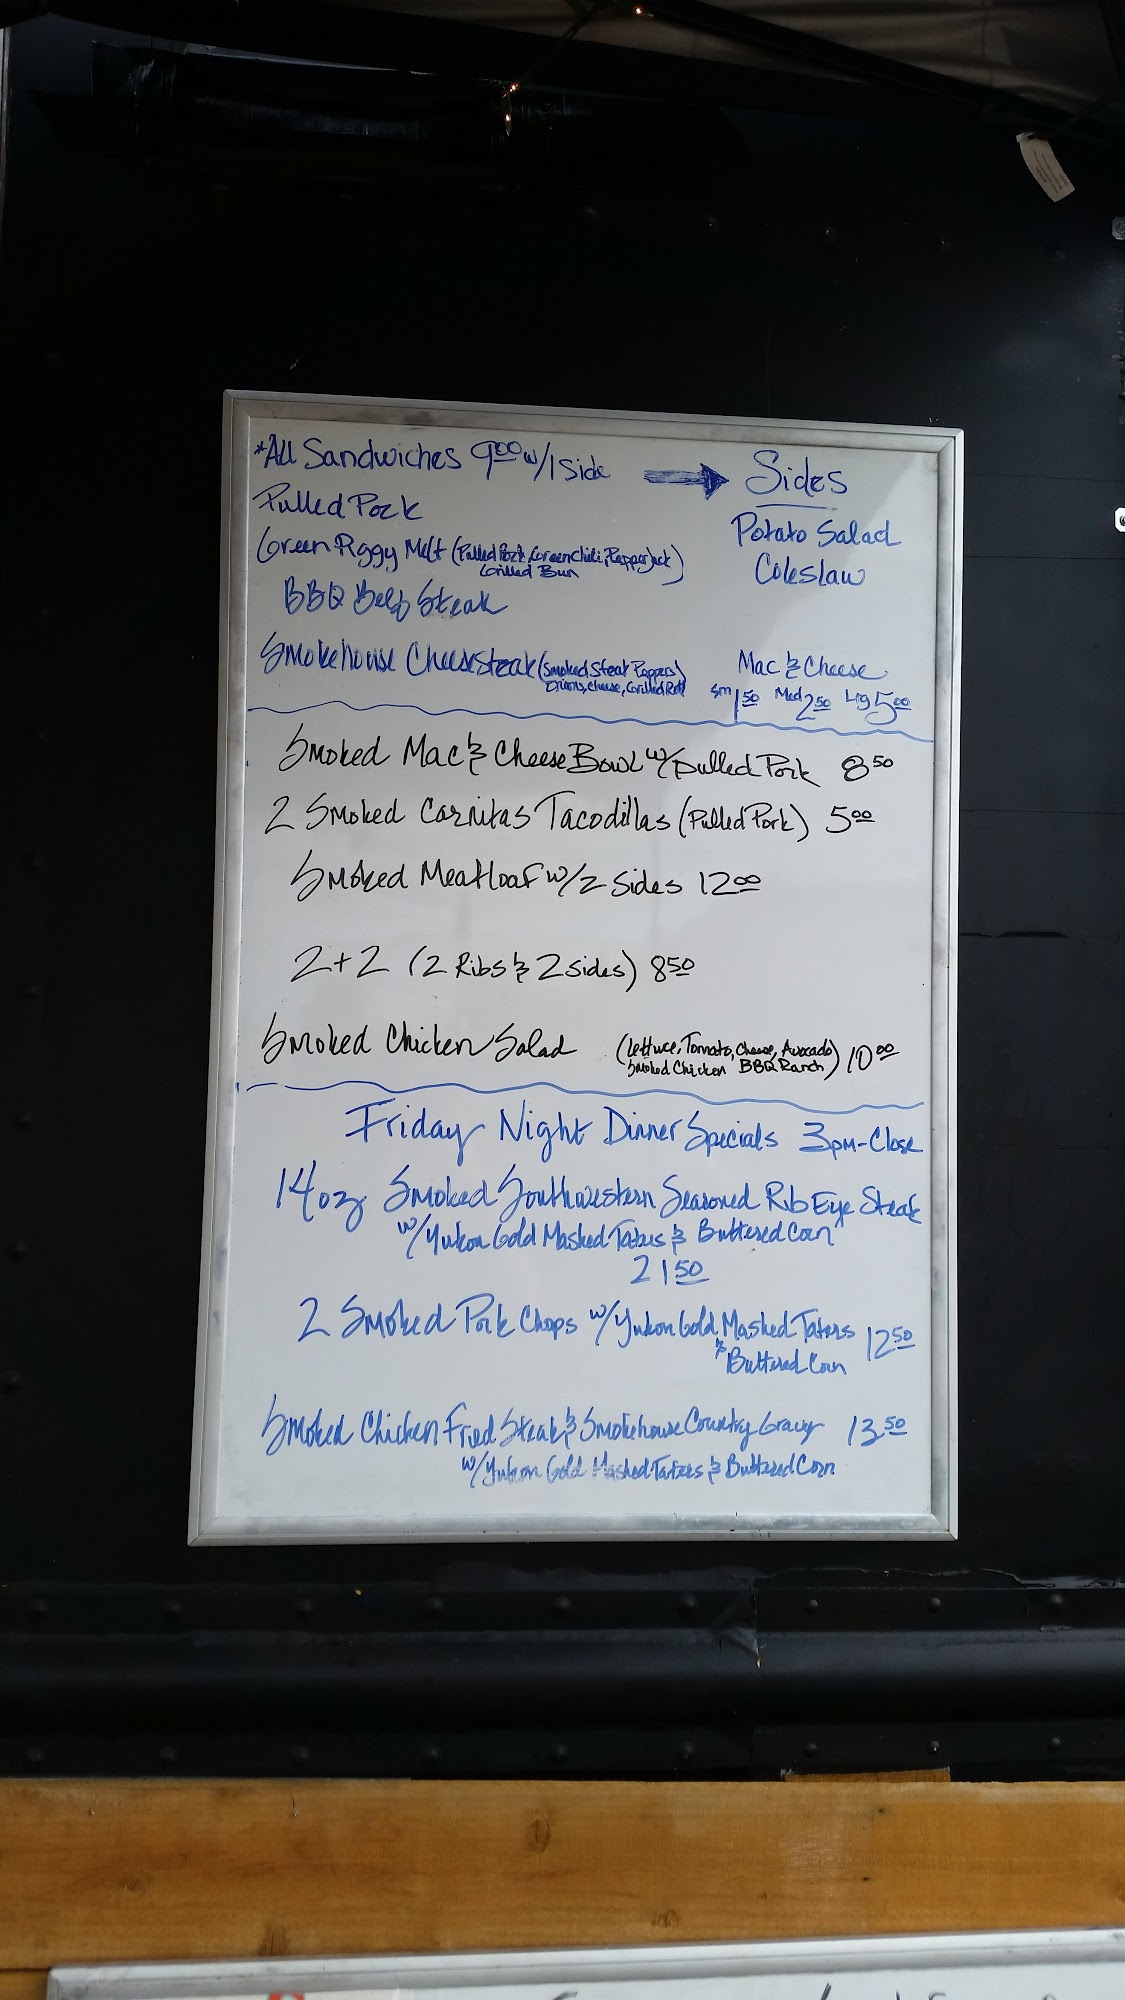 *All Sandwiches 9.00 w/1 Side → Sides
Pulled Pork
Potato Salad
Green Piggy Melt (Pulled Pork, Green Chili, Pepperjack
Grilled Bun)
Coleslaw
BBQ Beef Steak
Smokehouse Cheesesteak (Smoked Steak Peppers
Onions, Cheese, Grilled Roll)
Mac & Cheese
Sm 1.50 Med 2.50 Lrg 5.00
Smoked Mac & Cheese Bowl w/Pulled Pork 8.50
2 Smoked Carnitas Tacodillas (Pulled Pork) 5.00
Smoked Meatloaf w/2 Sides 12.00
2+2 (2 Ribs & 2 Sides) 8.50
Smoked Chicken Salad (Lettuce, Tomato, Cheese, Avocado
Smoked Chicken BBQ Ranch) 10.00
Friday Night Dinner Specials 3pm-Close
14oz Smoked Southwestern Seasoned Rib Eye Steak
w/Yukon Gold Mashed Taters & Buttered Corn
21.50
2 Smoked Pork Chops w/Yukon Gold Mashed Taters 12.50
& Buttered Corn
Smoked Chicken Fried Steak & Smokehouse Country Gravy 13.50
w/Yukon Gold Mashed Taters & Buttered Corn